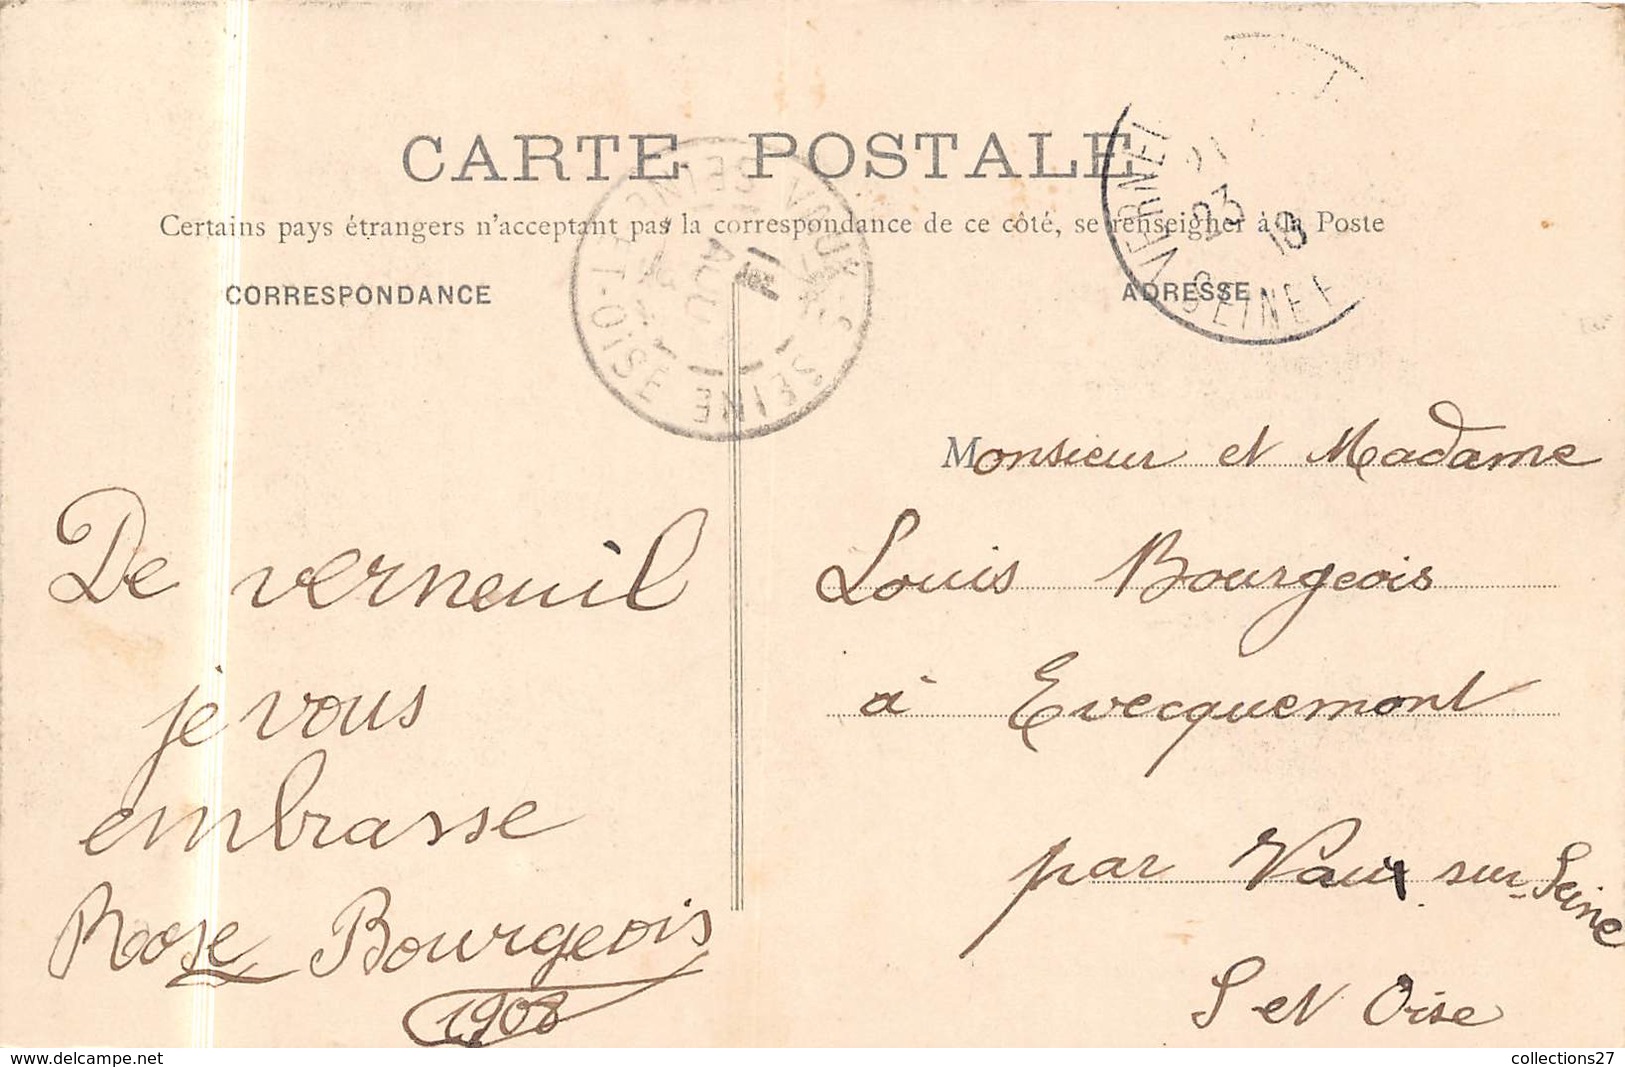 CARTE POSTALE
Certains pays étrangers n'acceptent pas la correspondance de ce côté, se renseigner à la Poste
CORRESPONDANCE
ADRESSE
VAUX-S-SEINE
SEINE-ET-OISE
AOUT
VERNEUIL
23
SEINE
De verneuil
je vous
embrasse
Rose Bourgeois
1908
Monsieur et Madame
Louis Bourgeois
à Evecquemont
par Vaux sur Seine
S et Oise
collections27